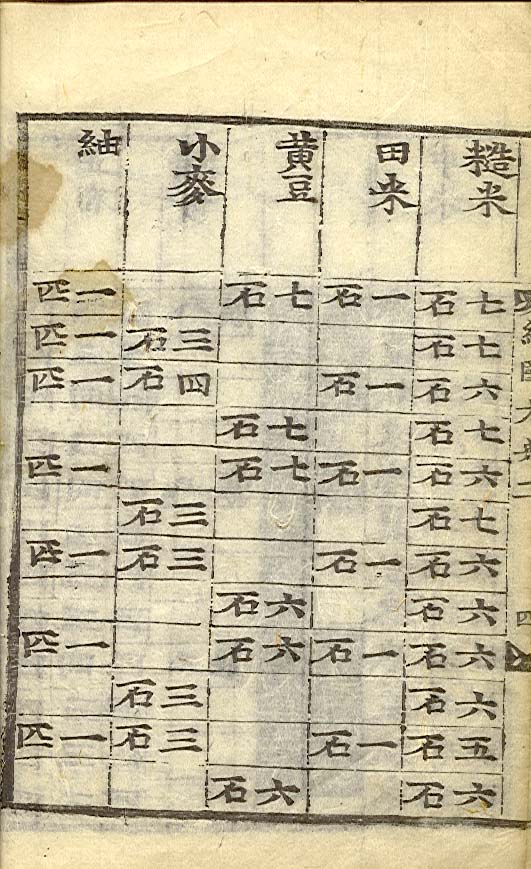 糙米 七石 七石 六石 七石 六石 七石 六石 六石 六石 六石 五石 六石
田米 一石 一石 一石 一石 一石 一石
黄豆 七石 七石 七石 六石 六石 六石
小麥 三石 四石 三石 三石 三石 三石
紬 一匹 一匹 一匹 一匹 一匹 一匹 一匹